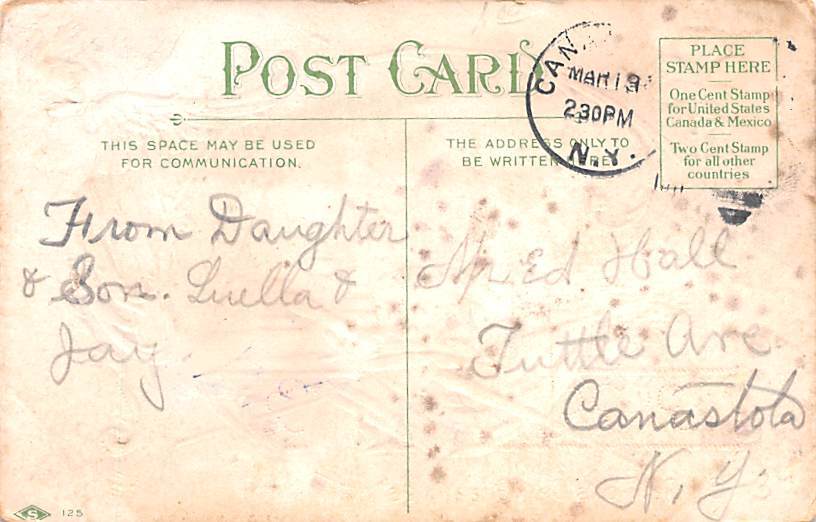 POST CARD
THIS SPACE MAY BE USED
FOR COMMUNICATION.
THE ADDRESS ONLY TO
BE WRITTEN HERE
PLACE
STAMP HERE
One Cent Stamp
for United States
Canada & Mexico
Two Cent Stamp
for all other
countries
CAN
MAR 19
230PM
N.Y.
From Daughter
& Son. Luella &
Jay
Mr Ed Hall
Tuttle Ave
Canastota
N. Y.
S 125